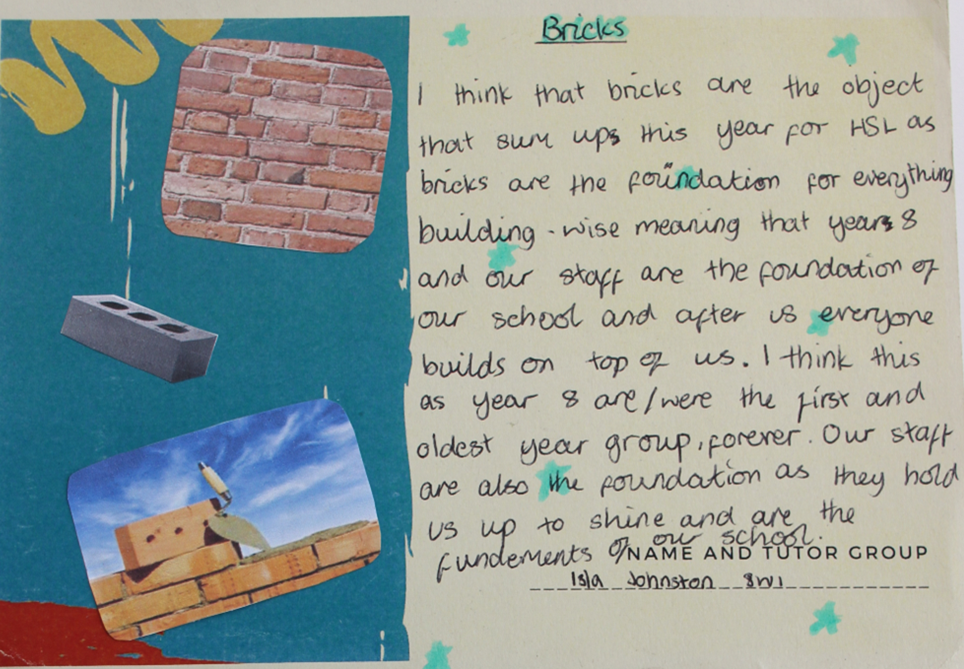 Bricks
I think that bricks are the object
that sum ups this year for HSL as
bricks are the foundation for everything
building-wise meaning that years 8
and our staff are the foundation of
our school and after us everyone
builds on top of us. I think this
as year 8 are/were the first and
oldest year group, forever. Our staff
are also the foundation as they hold
us up to shine and are the
fundements of our school.
NAME AND TUTOR GROUP
Isla Johnston 8W1